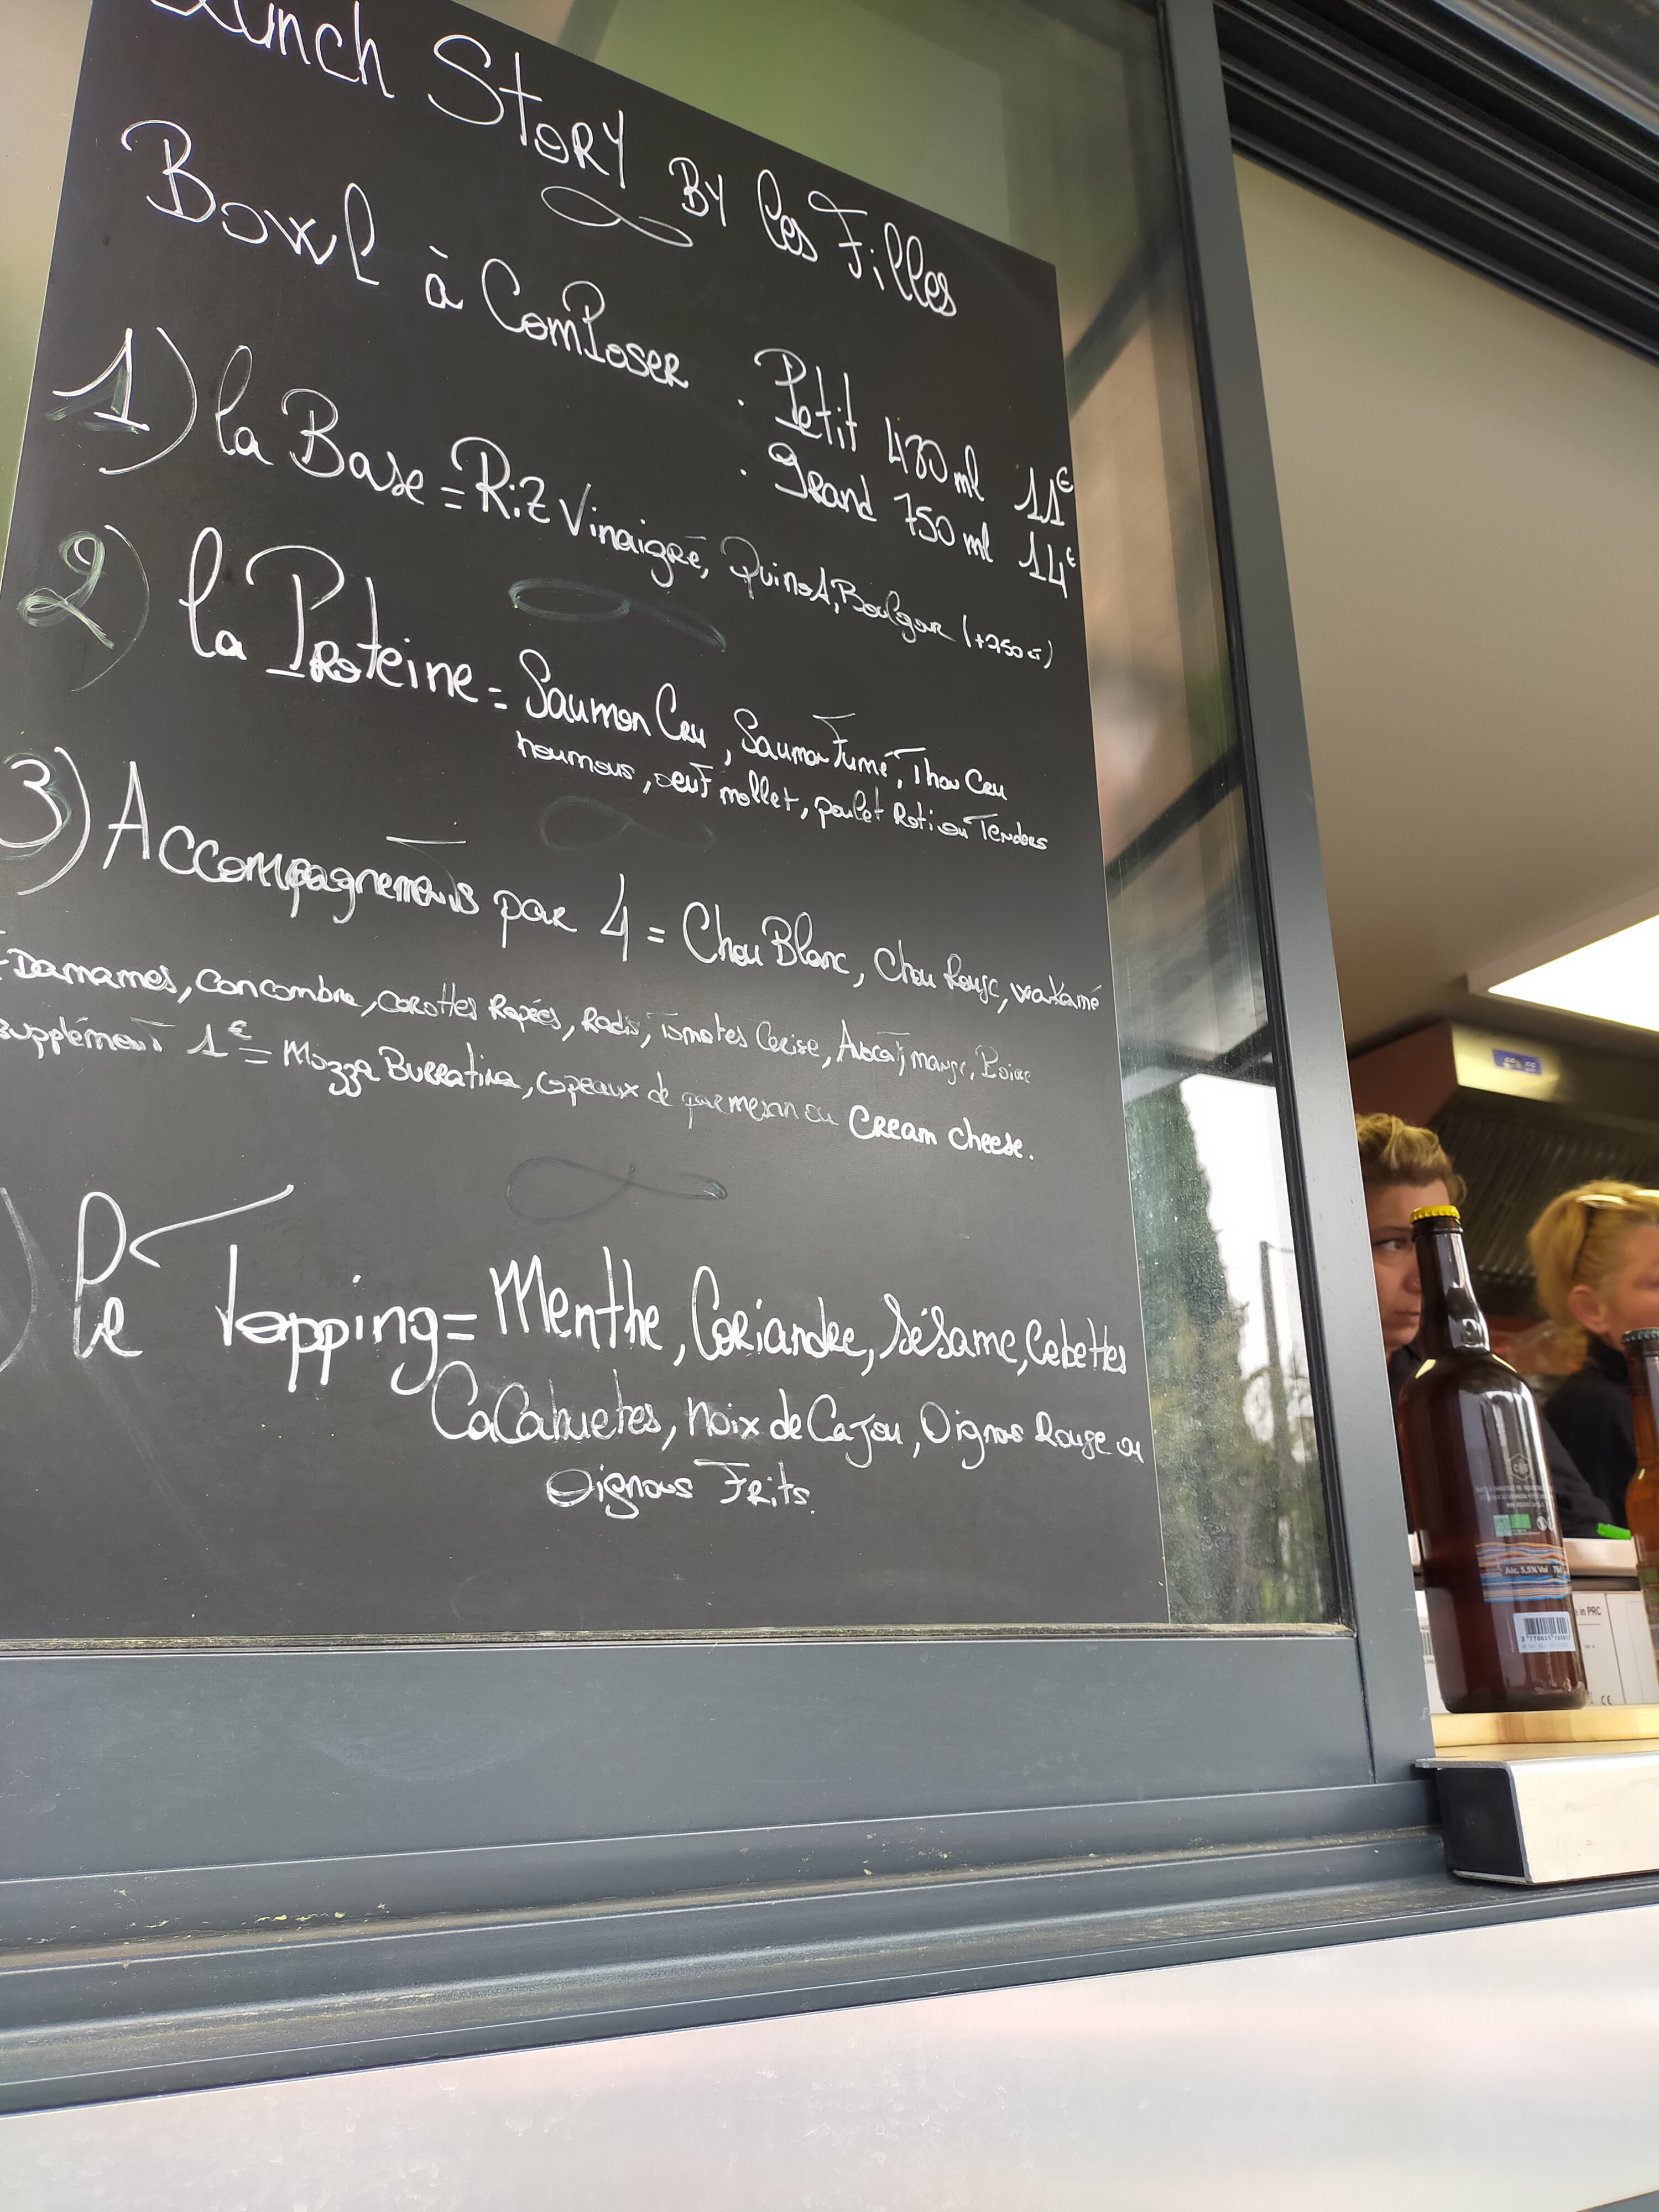 Lunch Story By les Filles
Bowl à Composer . Petit 480 ml 11€
. Grand 750 ml 14€
1) la Base = Riz Vinaigré, Quinoa, Boulgour
2) la Proteine = Saumon Cru, Saumon Fumé, Thon Cru
houmous, oeuf mollet, poulet Roti ou Tenders
3) Accompagnements par 4 = Chou Blanc, Chou Rouge, wakamé
EDamames, Concombre, carottes Rapées, Radis, Tomates Cerise, Avocat, mangue, Poire
Supplément 1€ = Mozza Burratina, copeaux de parmesan ou Cream cheese.
) le Topping = Menthe, Coriandre, Sésame, Cebettes
CaCahuetes, Noix de Cajou, Oignons Rouge ou
Oignons Frits.
Alc. 5,5% Vol
in PRC
CE